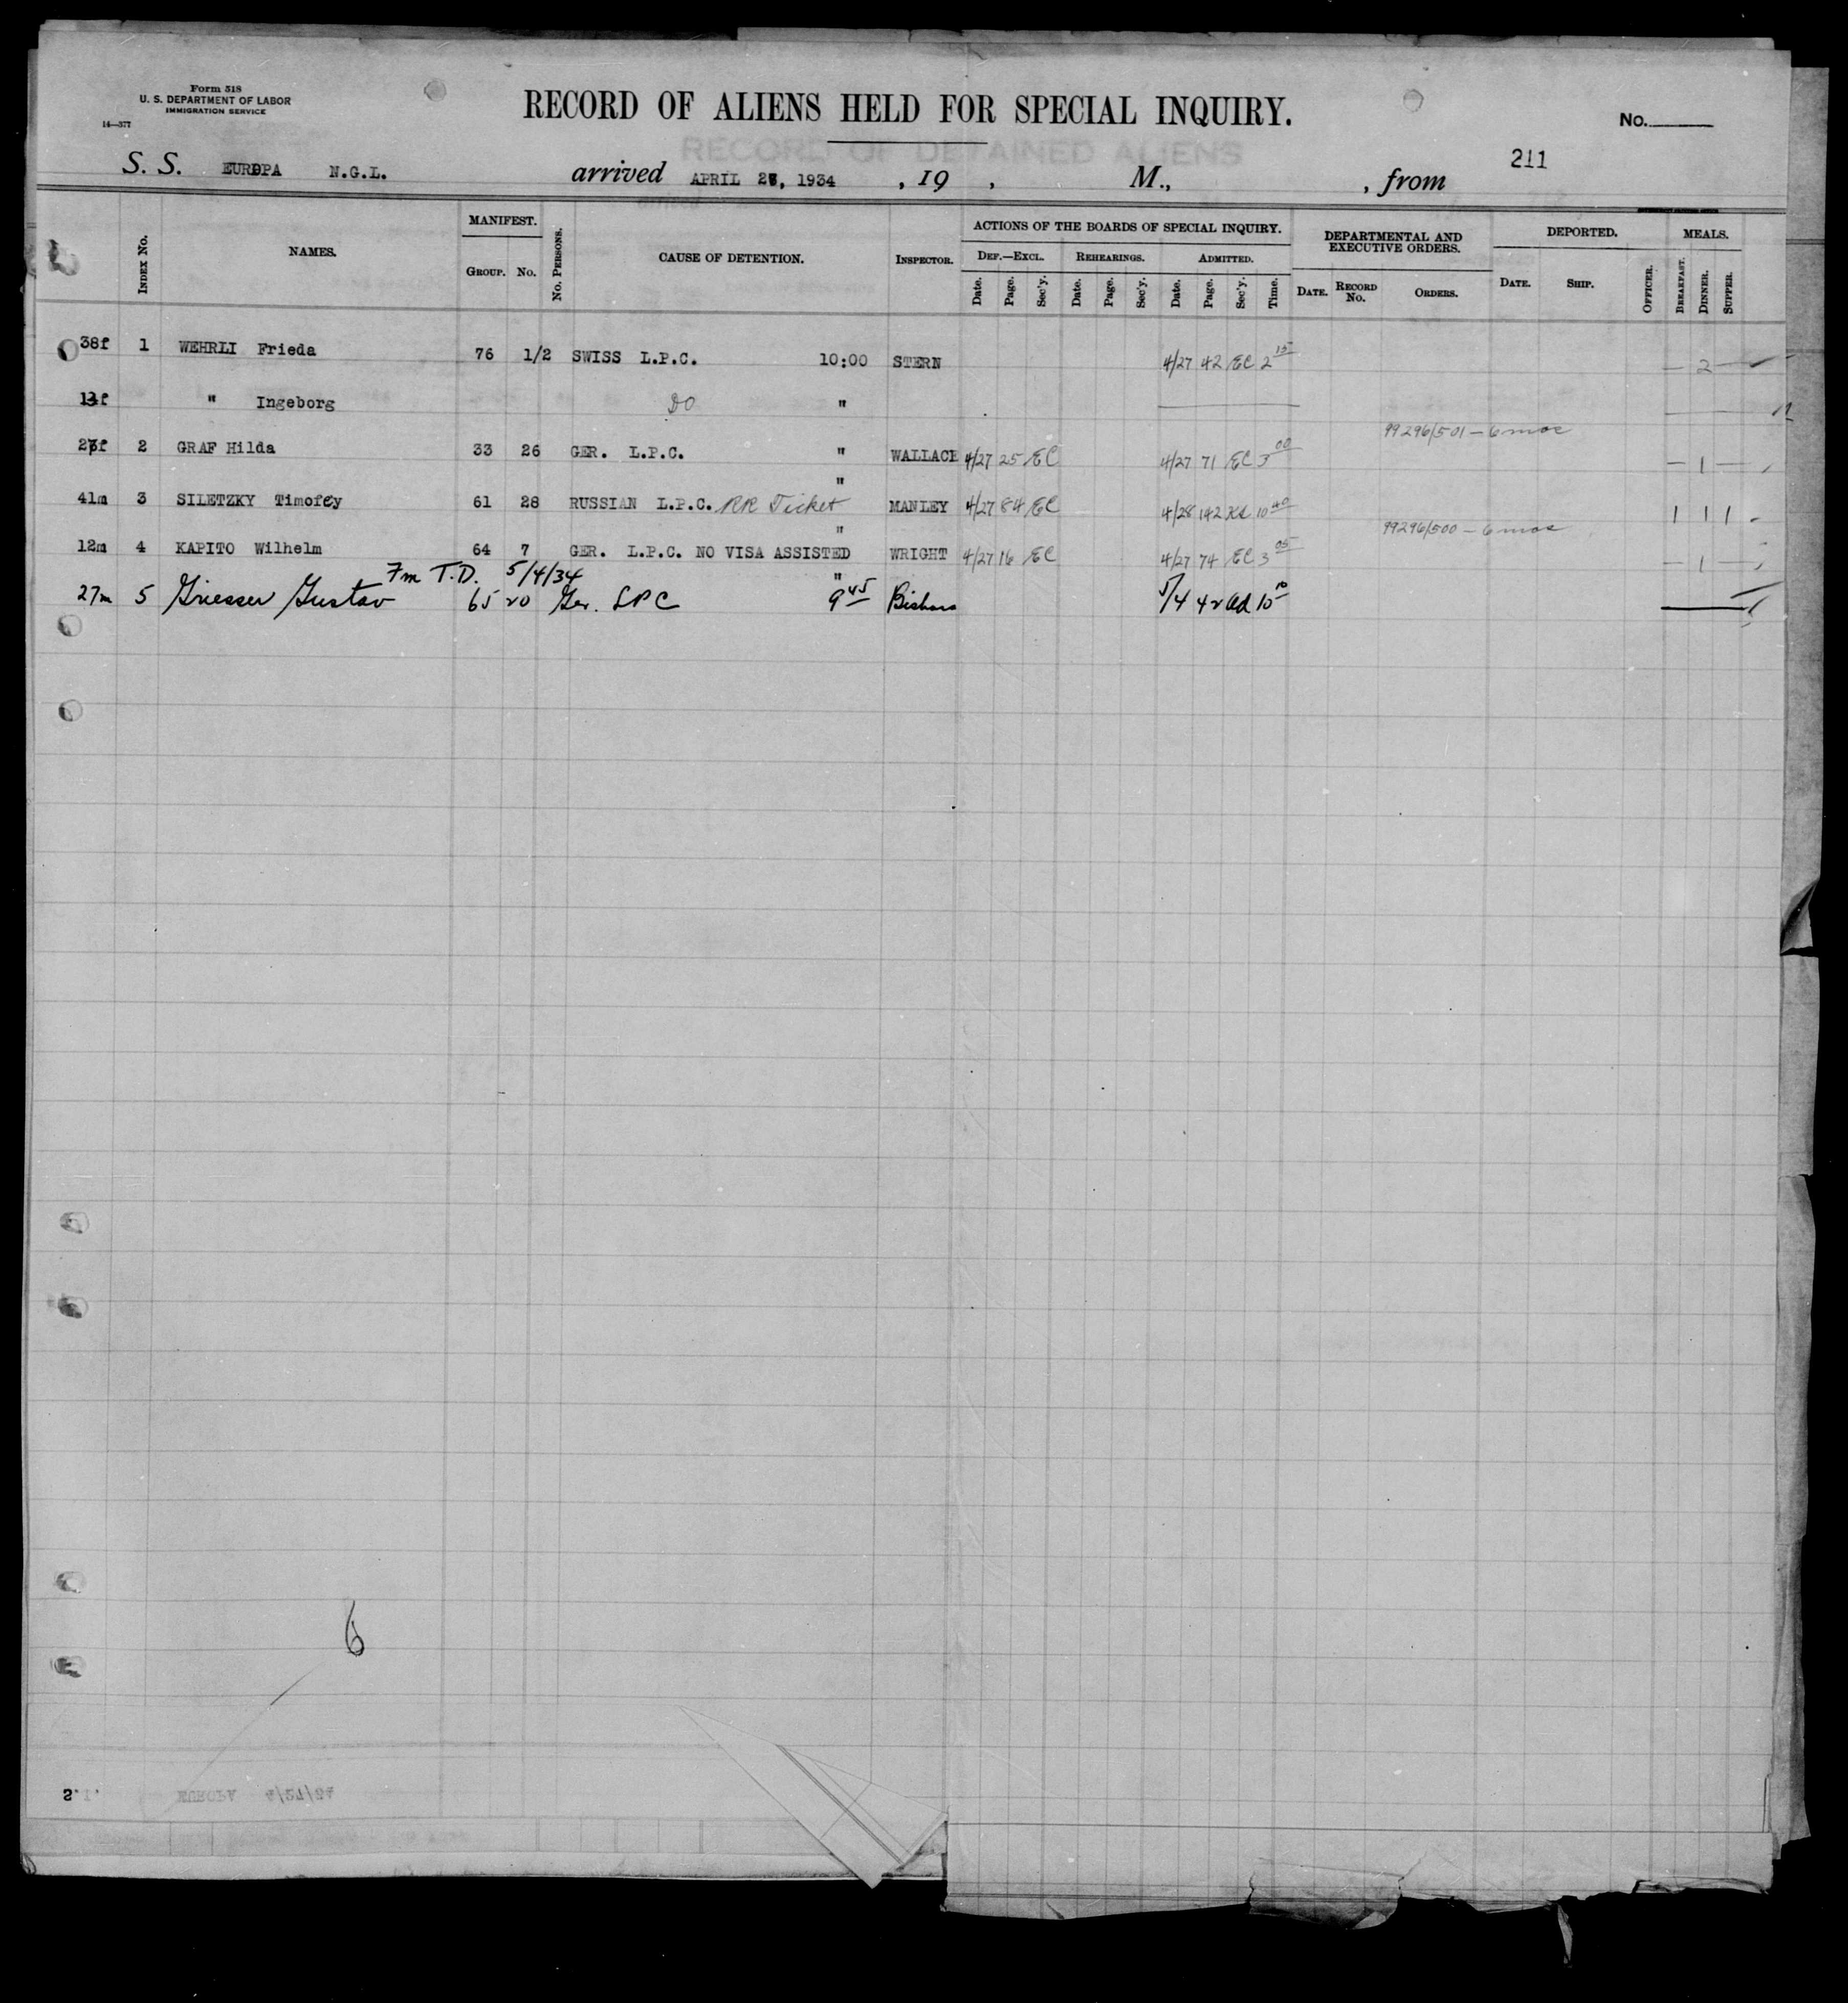 Form 518
U. S. DEPARTMENT OF LABOR
IMMIGRATION SERVICE
14—377
RECORD OF ALIENS HELD FOR SPECIAL INQUIRY.
No.
RECORD OF DETAINED ALIENS
211
S. S. EUROPA N.G.L. arrived APRIL 27, 1934 , 19 , M., , from
INDEX No. NAMES. MANIFEST. GROUP. No. No. PERSONS. CAUSE OF DETENTION. INSPECTOR. ACTIONS OF THE BOARDS OF SPECIAL INQUIRY. DEPARTMENTAL AND EXECUTIVE ORDERS. DEPORTED. MEALS.
DEF.—EXCL. REHEARINGS. ADMITTED.
Date. Page. Sec'y. Date. Page. Sec'y. Date. Page. Sec'y. Time. DATE. RECORD No. ORDERS. DATE. SHIP. OFFICER. BREAKFAST. DINNER. SUPPER.
38f 1 WEHRLI Frieda 76 1/2 SWISS L.P.C. 10:00 STERN 4/27 42 EC 2 15 — 2 —
" Ingeborg DO "
99296/501 — 6 mos
f 2 GRAF Hilda 33 26 GER. L.P.C. " WALLACE 4/27 25 EC 4/27 71 EC 3 00 — 1 —
"
41m 3 SILETZKY Timofey 61 28 RUSSIAN L.P.C. RR Ticket MANLEY 4/27 84 EC 4/28 142 10 40 1 1 1
" 99296/500 — 6 mos
12m 4 KAPITO Wilhelm 64 7 GER. L.P.C. NO VISA ASSISTED WRIGHT 4/27 16 EC 4/27 74 EC 3 05 — 1 —
Fm T.D. 5/4/34 "
27m 5 Griesser Gustav 65 20 Ger. LPC 9 45 5/4 42 ad 10 10
6
S.I. EUROPA 4/27/34